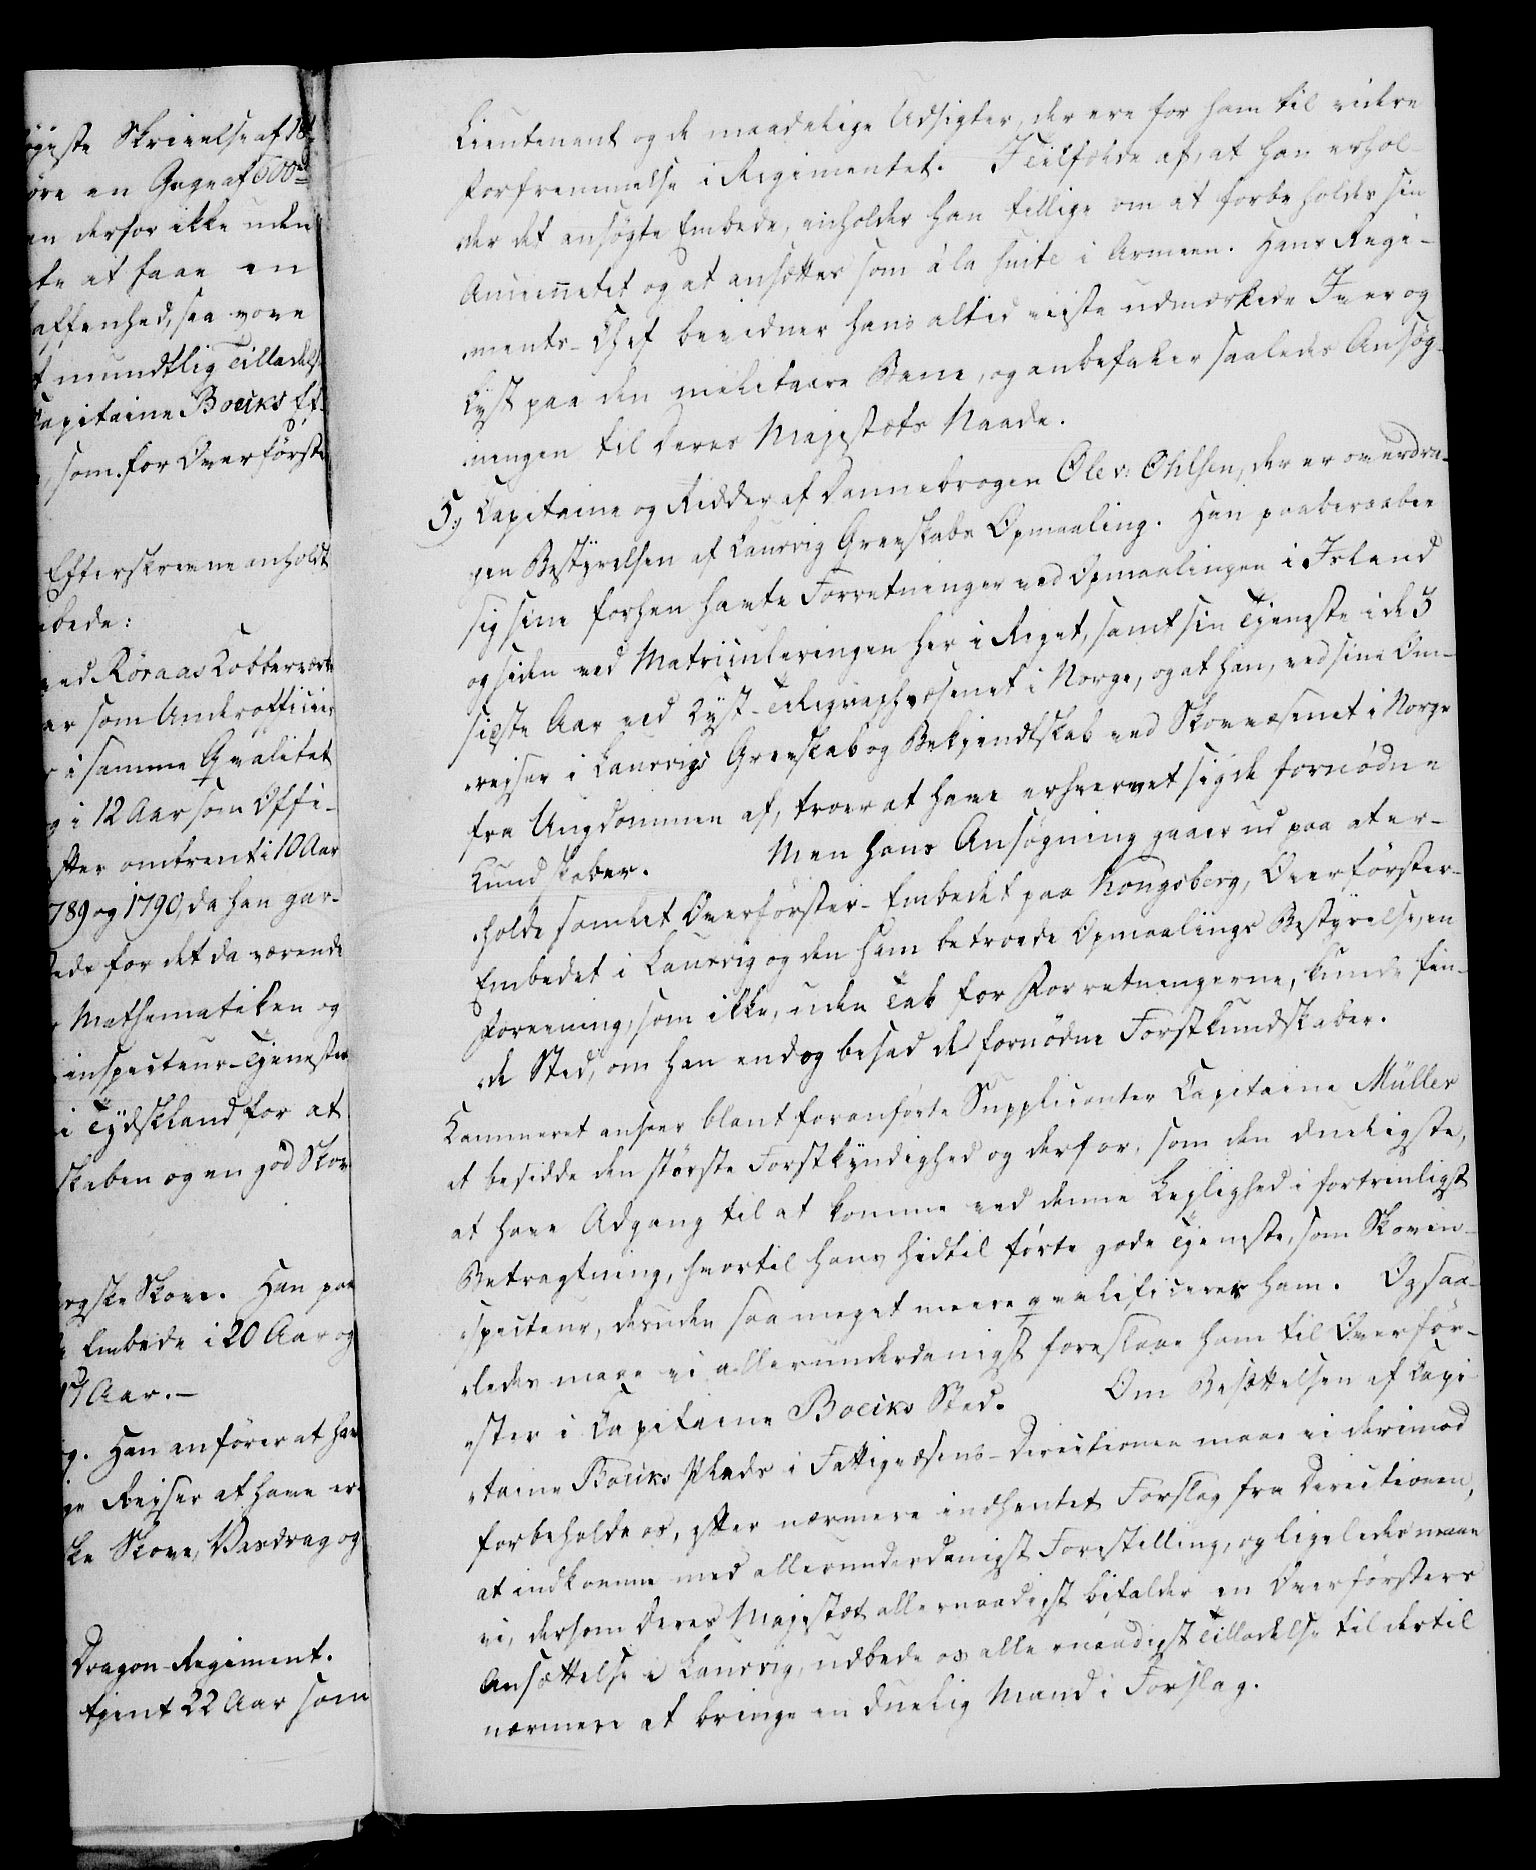 øyeste Skrivelse af 18
øre en Gage af 600rd
en derfor ikke uden
te at faae en
affenhed, saa vove
t mundtlig Tilladelse
Capitaine Boeiks Ef-
, som for Overførste
Efterskrevne anholdt
bede:
ved Röraas Kobberværk
ar som Underofficier
r i samme Qvalitet
g i 12 Aar som Offi-
fter omtrent i 10 Aar
789 og 1790, da han gar-
lede for det da værende
r Mathematiken og
inspecteur-Tjenester
i Tydskland for at
skaben og en god Skov
ergske Skove. Han paa
e Embede i 20 Aar og
17 Aar.-
g. Han anfører at have
ge Rejser at have er-
ke Skove, Vasdrag og
Dragon-Regiment.
tjent 22 Aar som
Lieutenant og de maadelige Udsigter, der ere for ham til videre
Forfremmelse i Regimentet. I Tilfælde af, at han erhol-
der det ansøgte Embede, anholder han tillige om at forbeholdes sin
Anciennetet og at ansættes som à la suite i Armeen. Hans Regi-
ments-Chef bevidner hans altid viiste udmærkede Iver og
Lyst paa den militaire Bane, og anbefaler saaledes Ansøg-
ningen til Deres Majestæts Naade.
5.) Capitaine og Ridder af Dannebrogen Ole v. Ohlsen, der er overdra-
gen Bestyrelsen af Laurvig Grevskabs Opmaaling. Han paaberaaber
sig sine forhen havte Forretninger ved Opmaalingen i Island
og siden ved Matriculeringen her i Riget, samt sin Tjeneste i de 3
sidste Aar ved Kyst-Telegraphvæsenet i Norge, og at han, ved sine Om-
rejser i Laurvigs Grevskab og Bekjendtskab ved Skovvæsenet i Norge
fra Ungdommen af, troer at have erhvervet sig de fornødne
Kundskaber. Men hans Ansøgning gaaer ud paa at er-
holde samlet Overförster-Embedet paa Kongsberg, Overförster-
Embedet i Laurvig og den ham betroede Opmaalings Bestyrelse, en
Forening, som ikke, uden Tab for Forretningerne, kunde fin-
de Sted, om han endog besad de fornødne Forstkundskaber.
Kammeret anseer blant foranførte Supplicanter Capitaine Müller
at besidde den største Forstkyndighed og derfor, som den dueligste,
at have Adgang til at komme ved denne Leylighed i fortrinligst
Betragtning, hvortil hans hidtil førte gode Tjeneste, som Skovin-
specteur, desuden saa meget meere qvalificerer ham. Ogsaa-
ledes maae vi allerunderdanigst foreslaae ham til Overför-
ster i Capitaine Boeiks Sted. Om Besættelsen af Capi
taine Boeiks Plads i Fattigvæsens-Directionen maae vi derimod
forbeholde os, efter nærmere indhentet Forslag fra Directionen,
at indkomme med allerunderdanigst Forestilling, og ligeledes maae
vi, dersom Deres Majestæt allernaadigst bifalder en Overförsters
Ansættelse i Laurvig, udbede os allernaadigst Tilladelse til dertil
nærmere at bringe en duelig Mand i Forslag.